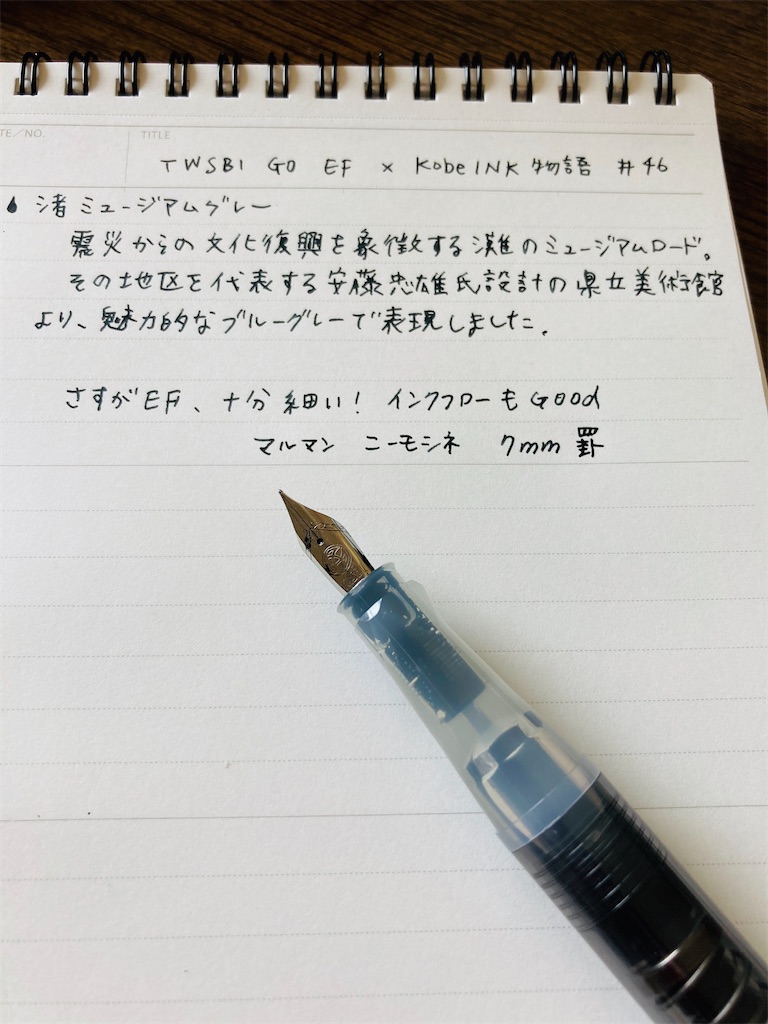 TE/NO.
TITLE
TWSBI GO EF × Kobe INK 物語 #46
渚ミュージアムグレー
震災からの文化復興を象徴する灘のミュージアムロード。
その地区を代表する安藤忠雄氏設計の県立美術館
より、魅力的なブルーグレーで表現しました。
さすがEF、十分細い! インクフローもGOOD
マルマン ニーモシネ 7mm 罫